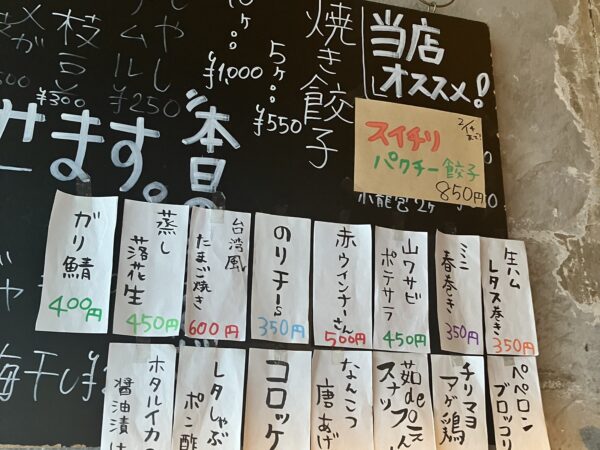 当店
オススメ!
焼き餃子
5ヶ
¥550
10ヶ
¥1,000
枝豆
¥300
¥250
本日
せます。
スイチリ
パクチー餃子
850円
小籠包2ヶ
生ハム
レタス巻き
350円
ミニ
春巻き
350円
山ワサビ
ポテサラ
450円
赤ウインナーさん
500円
のりチーs
350円
台湾風
たまご焼き
600円
蒸し
落花生
450円
ガリ鯖
400円
ペペロン
ブロッコリ
チリマヨ
アゲ鶏
茹de
スナップえん
なんこつ
唐あげ
コロッケ
レタしゃぶ
ポン酢
ホタルイカの
醤油漬け
梅干し